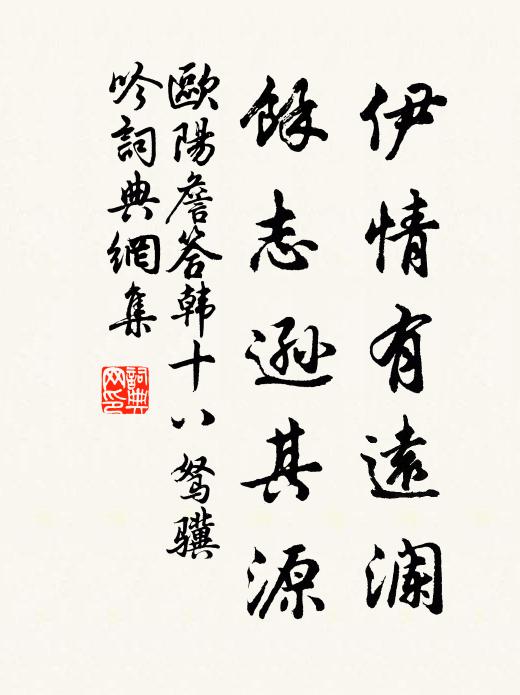 伊情有遠瀾
餘志遜其源
歐陽詹答韩十八驽骥
吟詞典網集
詞典网印